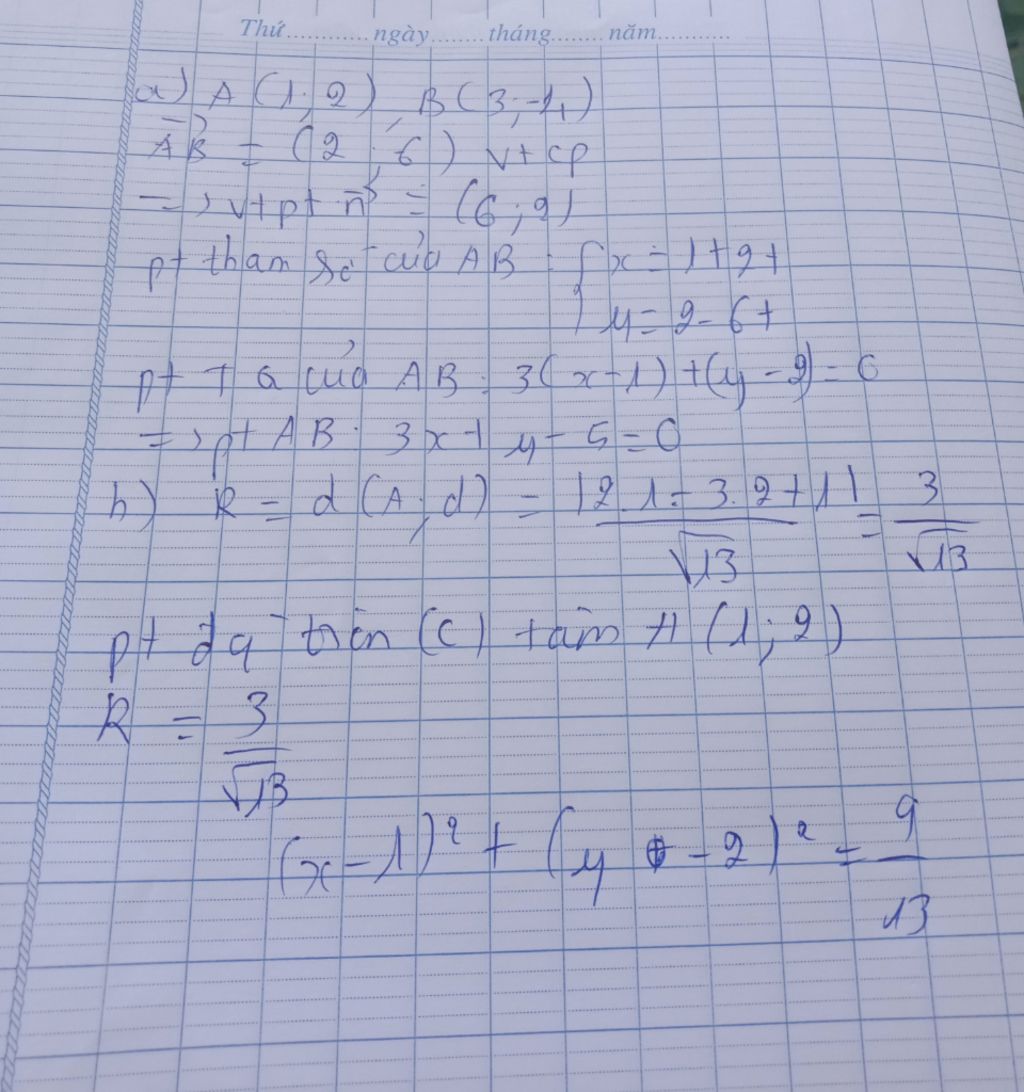 Thứ............ngày........tháng........năm...........
a) A (1; 2), B (3; -4)
AB = (2; 6) vtcp
=> vtpt n = (6; 2)
pt tham số của AB : { x = 1 + 2t
y = 2 - 6t
pt TQ của AB : 3(x-1) + (y-2) = 0
=> pt AB : 3x + y - 5 = 0
b) R = d (A; d) = |2.1 - 3.2 + 1| / √13 = 3 / √13
pt đg tròn (C) tâm A (1; 2)
R = 3 / √13
(x-1)² + (y - 2)² = 9 / 13